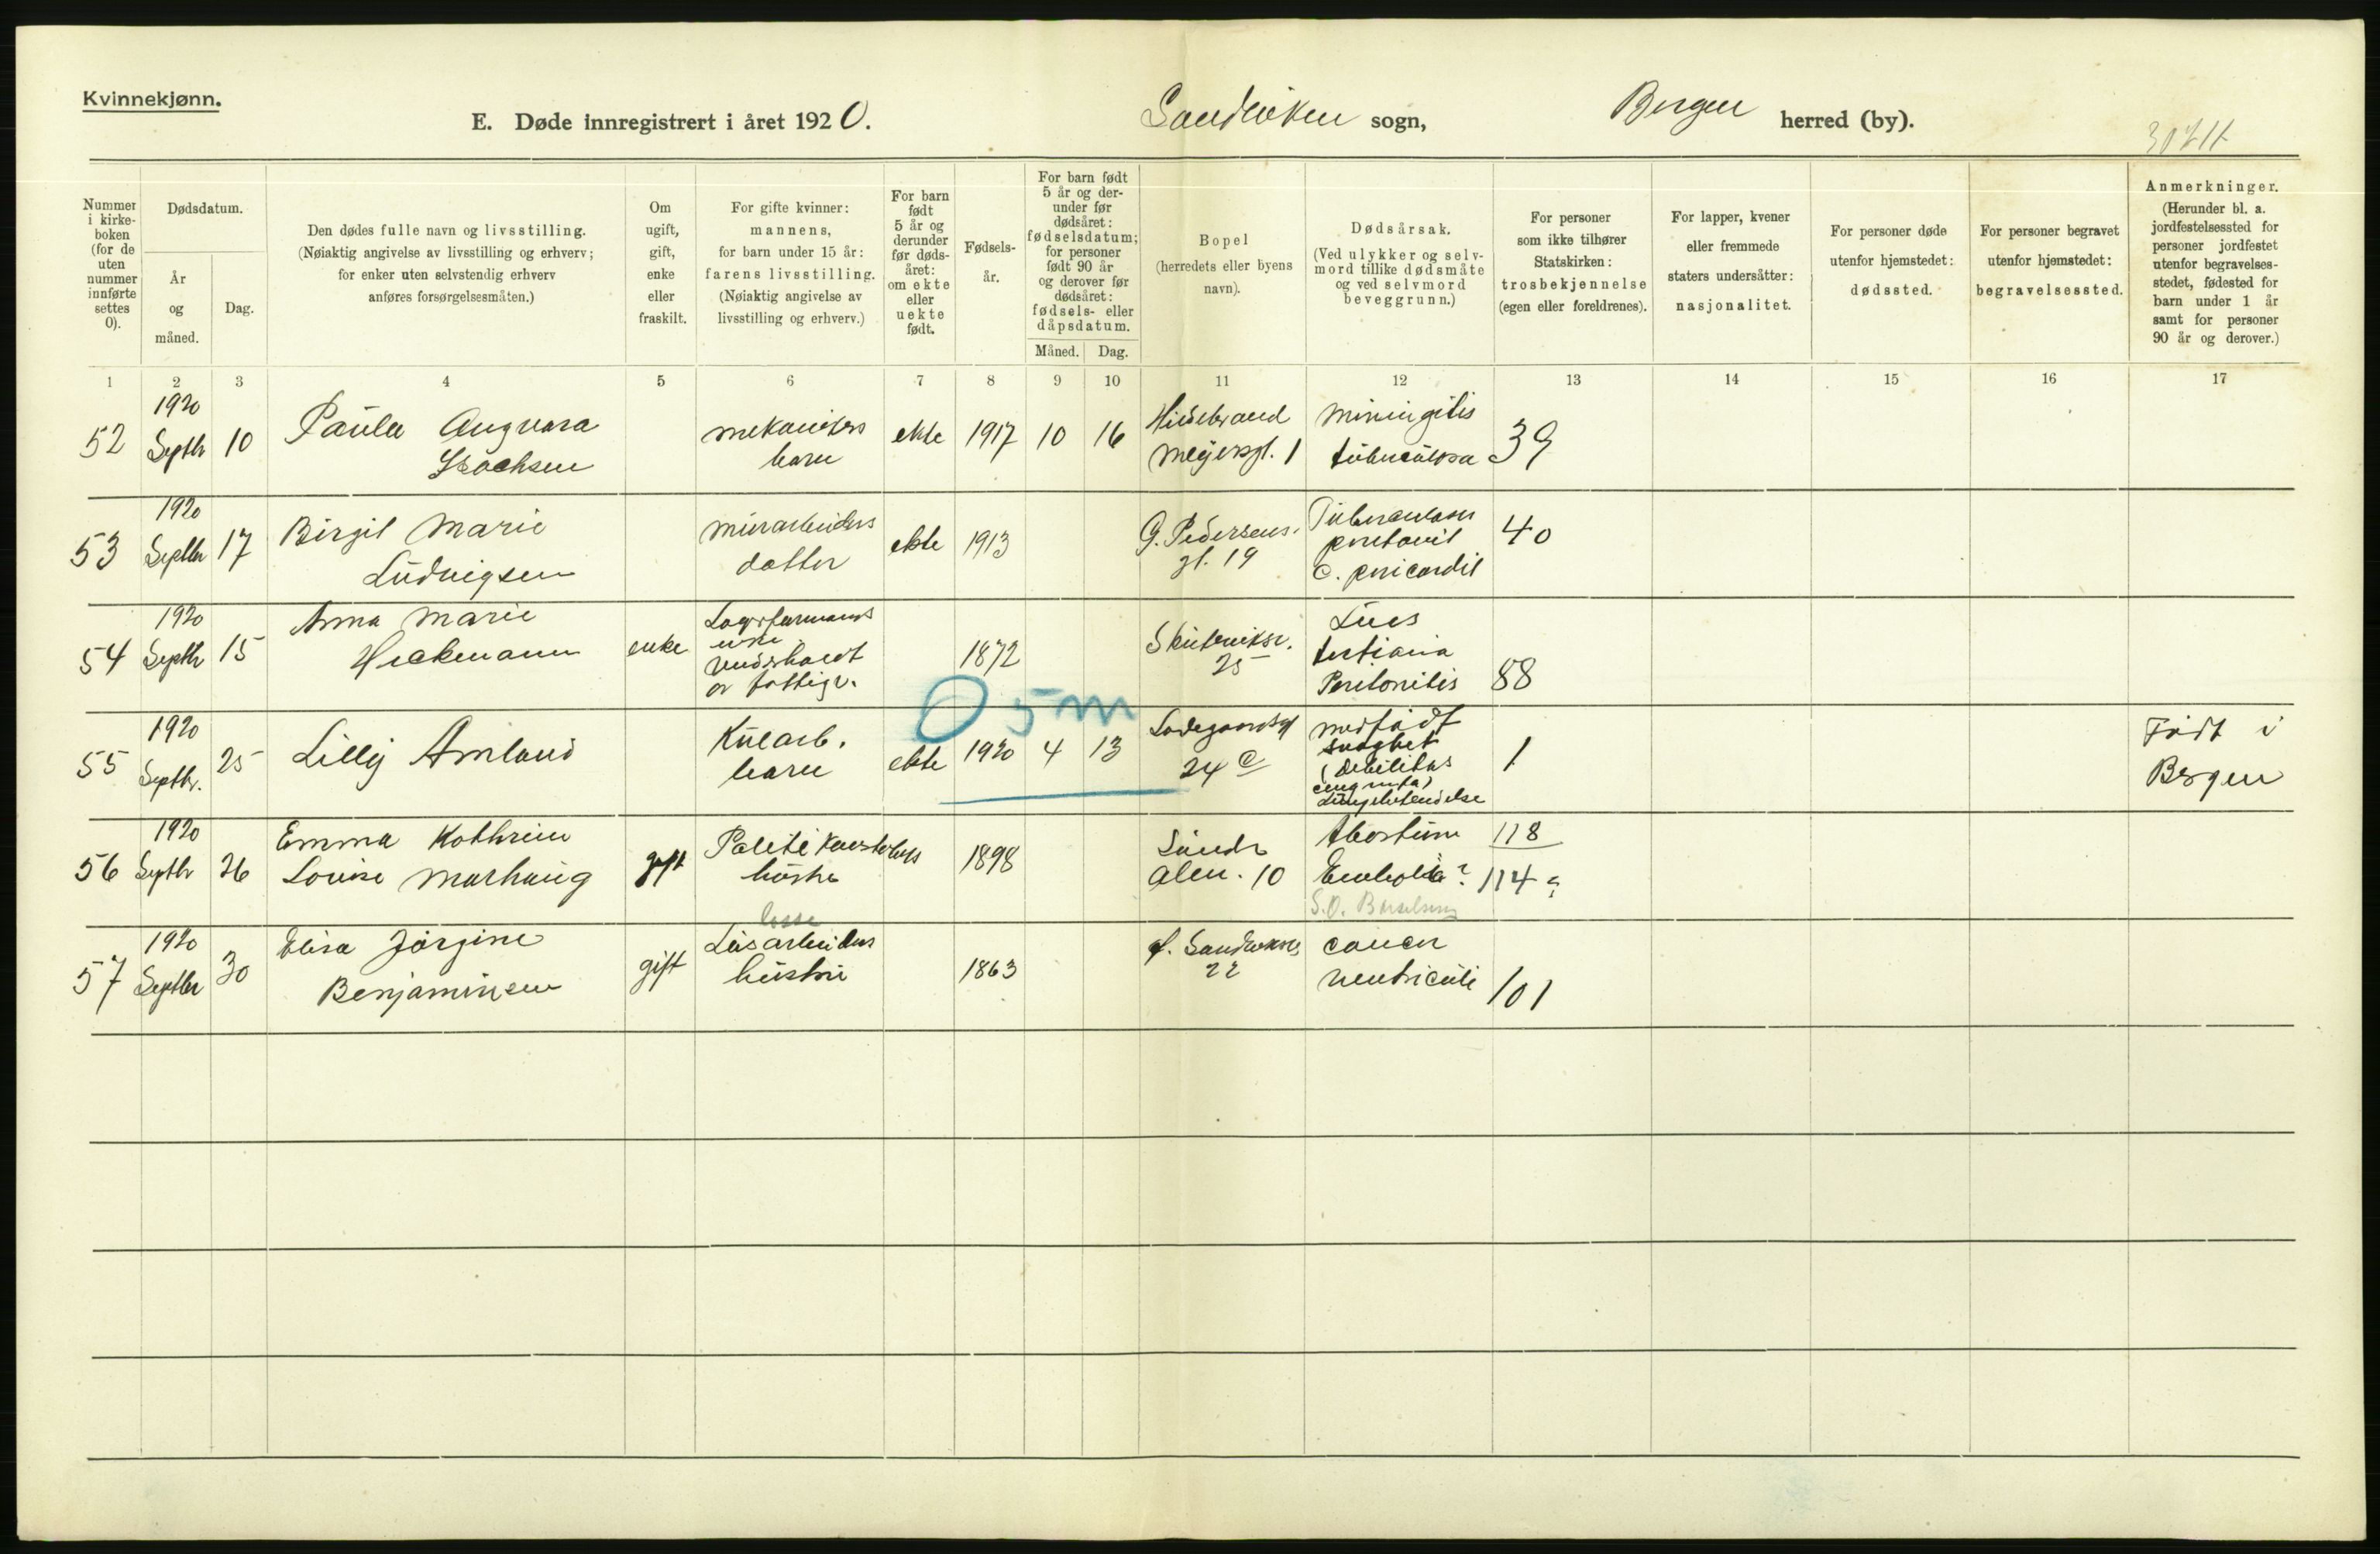 Kvinnekjønn.
E. Døde innregistrert i året 1920. Sandviken sogn, Bergen herred (by).
Nummer i kirke-boken (for de uten nummer innførte settes 0).
Dødsdatum.
År og måned.
Dag.
Den dødes fulle navn og livsstilling.
(Nøiaktig angivelse av livsstilling og erhverv;
for enker uten selvstendig erhverv
anføres forsørgelsesmåten.)
Om ugift, gift, enke eller fraskilt.
For gifte kvinner:
mannens,
for barn under 15 år:
farens livsstilling.
(Nøiaktig angivelse av
livsstilling og erhverv.)
For barn født 5 år og derunder før døds-året: om ekte eller uekte født.
Fødsels-år.
For barn født 5 år og der-under før dødsåret: fødselsdatum; for personer født 90 år og derover før dødsåret: fødsels- eller dåpsdatum.
Måned. Dag.
Bopel
(herredets eller byens
navn).
Dødsårsak.
(Ved ulykker og selv-
mord tillike dødsmåte
og ved selvmord
beveggrunn.)
For personer
som ikke tilhører
Statskirken:
trosbekjennelse
(egen eller foreldrenes).
For lapper, kvener
eller fremmede
staters undersåtter:
nasjonalitet.
For personer døde
utenfor hjemstedet:
dødssted.
For personer begravet
utenfor hjemstedet:
begravelsessted.
Anmerkninger.
(Herunder bl. a.
jordfestelsessted for
personer jordfestet
utenfor begravelses-
stedet, fødested for
barn under 1 år
samt for personer
90 år og derover.)
1 2 3 4 5 6 7 8 9 10 11 12 13 14 15 16 17
52 1920 Septbr 10 Paula Angvara Isachsen mekanikers barn ekte 1917 10 16 Hildebrand Meyersgt. 1 Miningitis tuberculosa 39
53 1920 Septbr 17 Birgit Marie Ludvigsen murarbeiders datter ekte 1913 G. Pedersens gt. 19 Tuberculøs peritonit c. pericardit 40
54 1920 Septbr 15 Anna Marie Heckmann enke enke understøttet av fattigv. 1872 Skuteviksv. 25 Lues tertiaria Peritonitis 88
O 5 m
55 1920 Septbr. 25 Lilly Amland Kularb. barn ekte 1920 4 13 Ladegaardsgt 24 c medfødt svaghet (Debilitas congenita) Lungebetendelse 1 Født i Bergen
56 1920 Septbr 26 Emma Kathrine Louise Marhaug gift Politikonstabels hustru 1898 Søndre Alen. 10 Abortum 118 Emboli? 114?
57 1920 Septbr 30 Elisa Jørgine Benjaminsen gift losse Løsarbeiders hustru 1863 Sandviksv. 22 cancer ventriculi 101